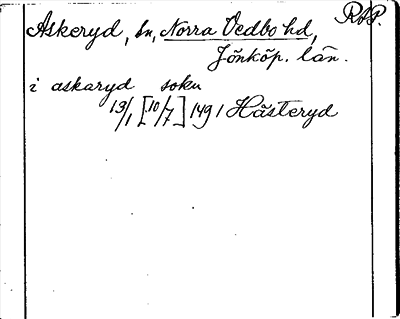 RAP.
Askeryd, sn, Norra Vedbo hd,
Jönköp. län.
i askaryd sokn
13/1 [10/7] 1491 Hästeryd